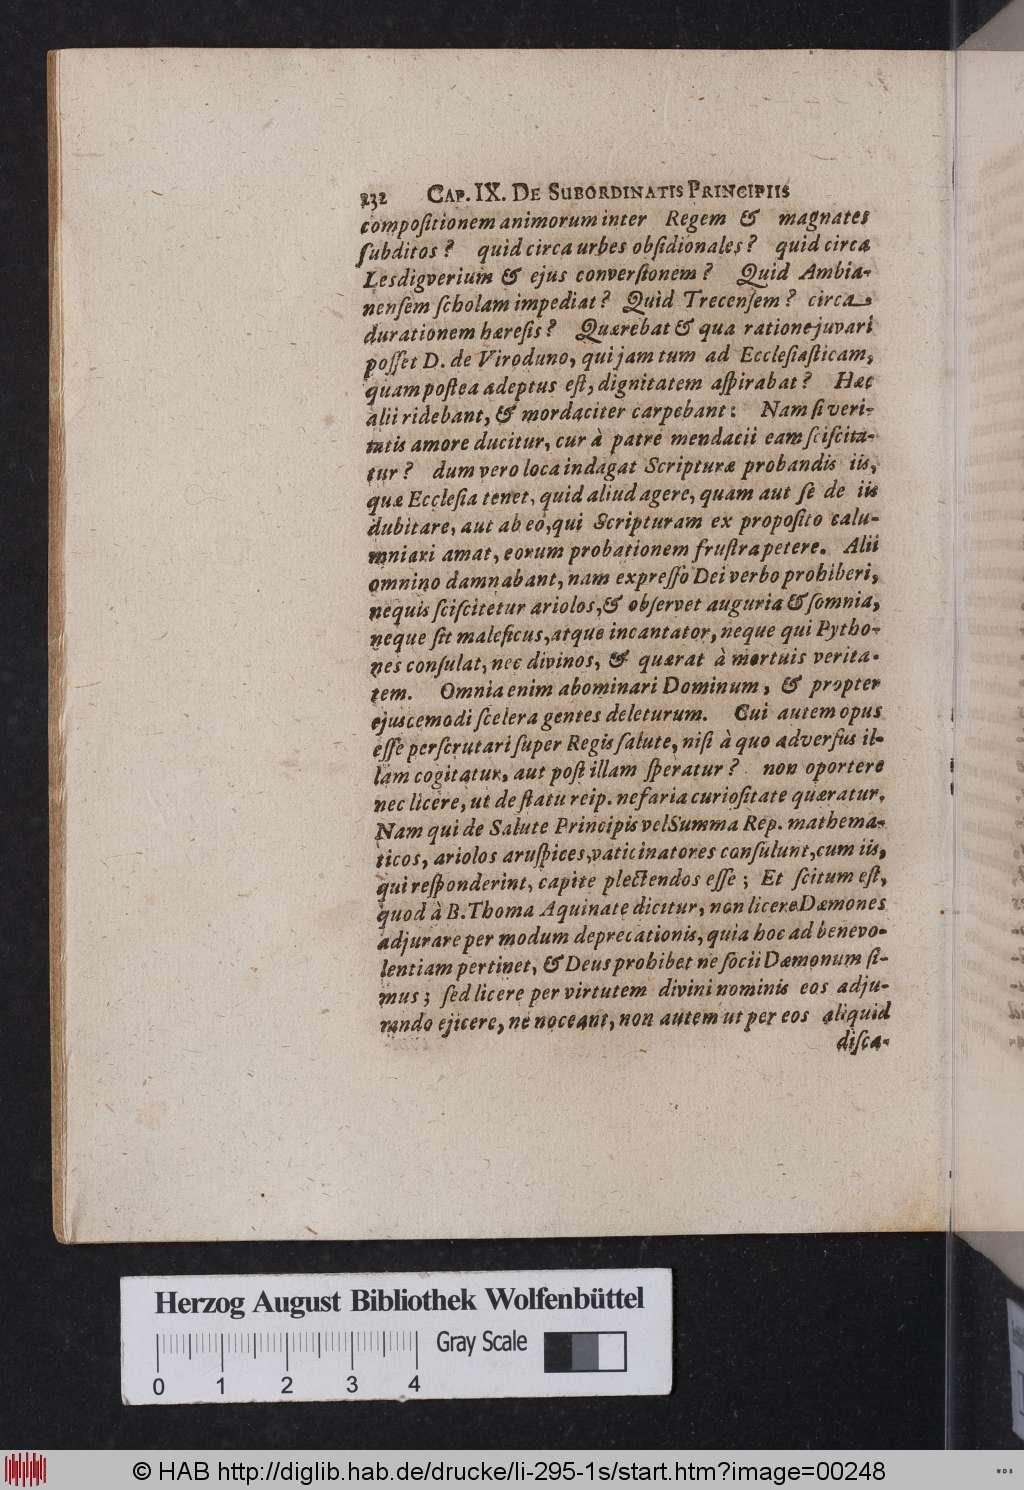 232 CAP. IX. DE SUBORDINATIS PRINCIPIIS
compositionem animorum inter Regem & magnates
subditos? quid circa urbes obsidionales? quid circa
Lesdigverium & ejus conversionem? Quid Ambia-
nensem scholam impediat? Quid Trecensem? circa
durationem hæresis? Quærebat & qua ratione juvari
posset D. de Viroduno, qui jam tum ad Ecclesiasticam,
quam postea adeptus est, dignitatem aspirabat? Hæc
alii ridebant, & mordaciter carpebant: Nam si veri-
tatis amore ducitur, cur à patre mendacii eam sciscita-
tur? dum vero loca indagat Scripturæ probandis iis,
quæ Ecclesia tenet, quid aliud agere, quam aut se de iis
dubitare, aut ab eo, qui Scripturam ex proposito calu-
mniari amat, eorum probationem frustra petere. Alii
omnino damnabant, nam expresso Dei verbo prohiberi,
nequis sciscitetur ariolos, & observet auguria & somnia,
neque sit maleficus, atque incantator, neque qui Pytho-
nes consulat, nec divinos, & quærat à mortuis verita-
tem. Omnia enim abominari Dominum, & propter
ejuscemodi scelera gentes deleturum. Cui autem opus
esse perscrutari super Regis salute, nisi à quo adversus il-
lam cogitatur, aut post illam speratur? non oportere
nec licere, ut de statu reip. nefaria curiositate quæratur.
Nam qui de Salute Principis vel Summa Rep. mathema-
ticos, ariolos aruspices, vaticinatores consulunt, cum iis,
qui responderint, capite plectendos esse; Et scitum est,
quod à B. Thoma Aquinate dicitur, non licere Dæmones
adjurare per modum deprecationis, quia hoc ad benevo-
lentiam pertinet, & Deus prohibet ne socii Dæmonum si-
mus; sed licere per virtutem divini nominis eos adju-
rando ejicere, ne noceant, non autem ut per eos aliquid
disca-
Herzog August Bibliothek Wolfenbüttel
Gray Scale
0 1 2 3 4
© HAB http://diglib.hab.de/drucke/li-295-1s/start.htm?image=00248